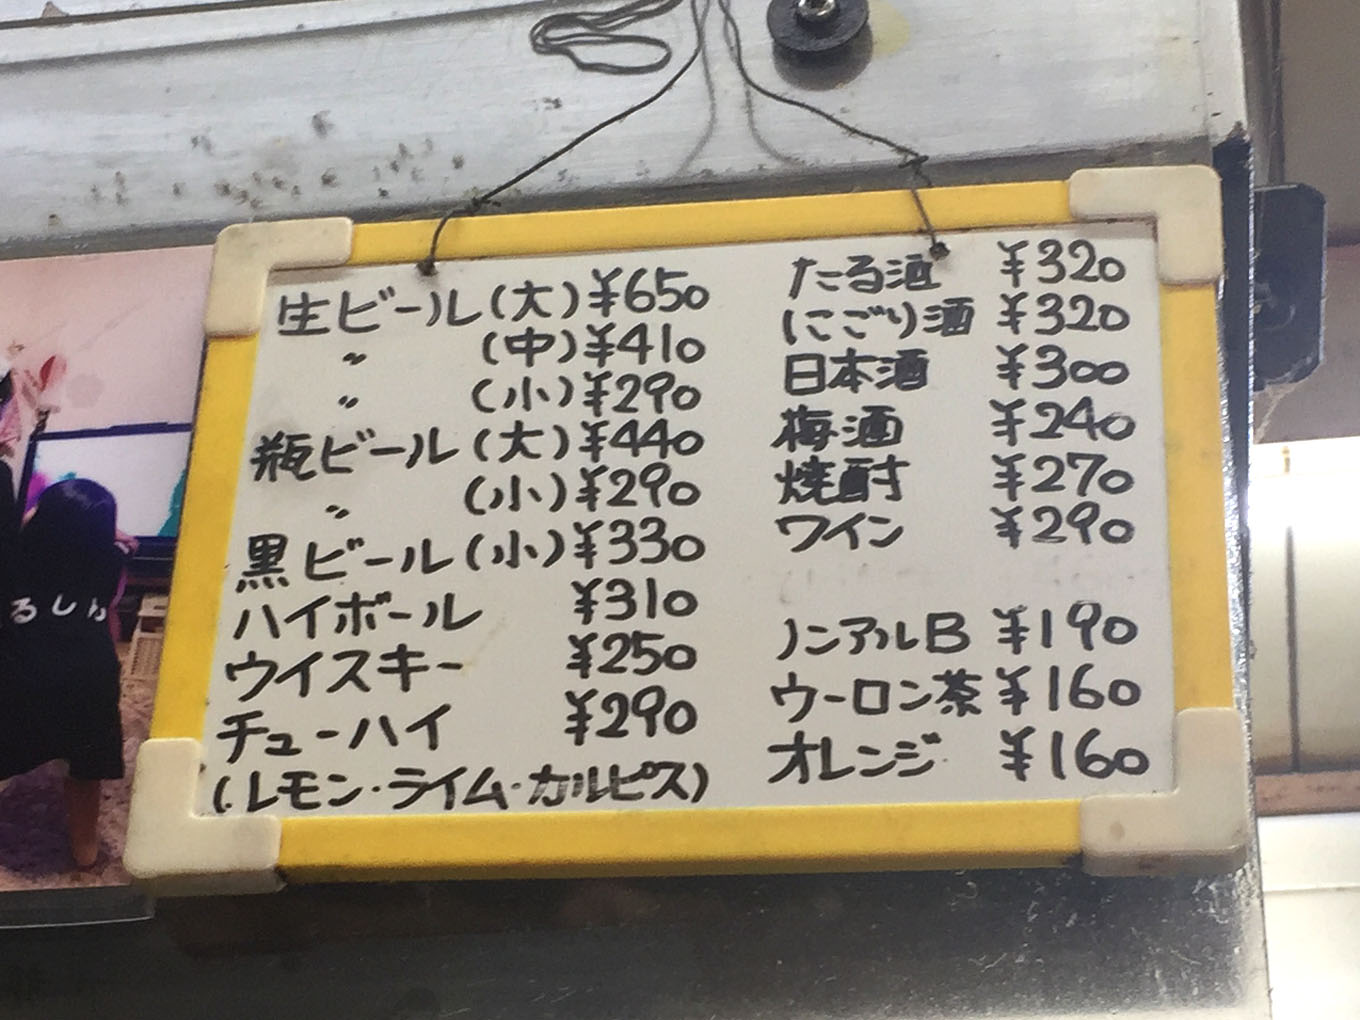 生ビール(大)¥650
〃 (中)¥410
〃 (小)¥290
瓶ビール(大)¥440
〃 (小)¥290
黒ビール(小)¥330
ハイボール ¥310
ウイスキー ¥250
チューハイ ¥290
(レモン・ライム・カルピス)
たる酒 ¥320
にごり酒 ¥320
日本酒 ¥300
梅酒 ¥240
焼酎 ¥270
ワイン ¥290
ノンアルB ¥190
ウーロン茶 ¥160
オレンジ ¥160